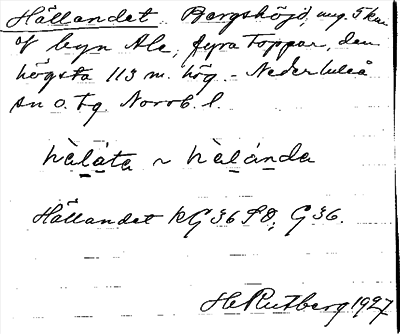 Hällandet Bergshöjd, ung. 5 km
af byn Ale, fyra toppar, den
högsta 113 m. hög. - Nederluleå
sn o. tg Norrb. l.
hàláta ~ hàlánda
Hällandet KG 36 SO, G 36.
H. Rutberg 1927